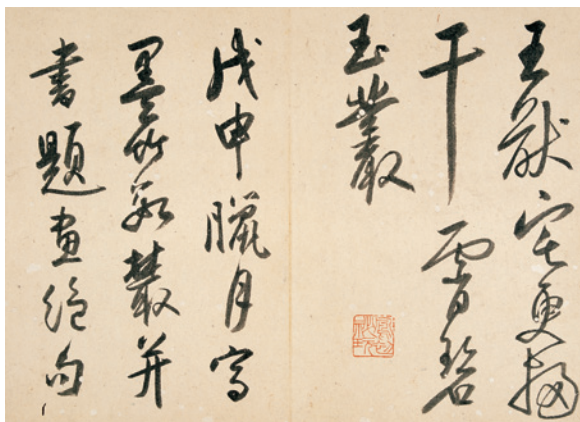 王猷宅更
干霄碧
玉叢
戊申臘月寫
墨竹數叢并
書題畫絕句